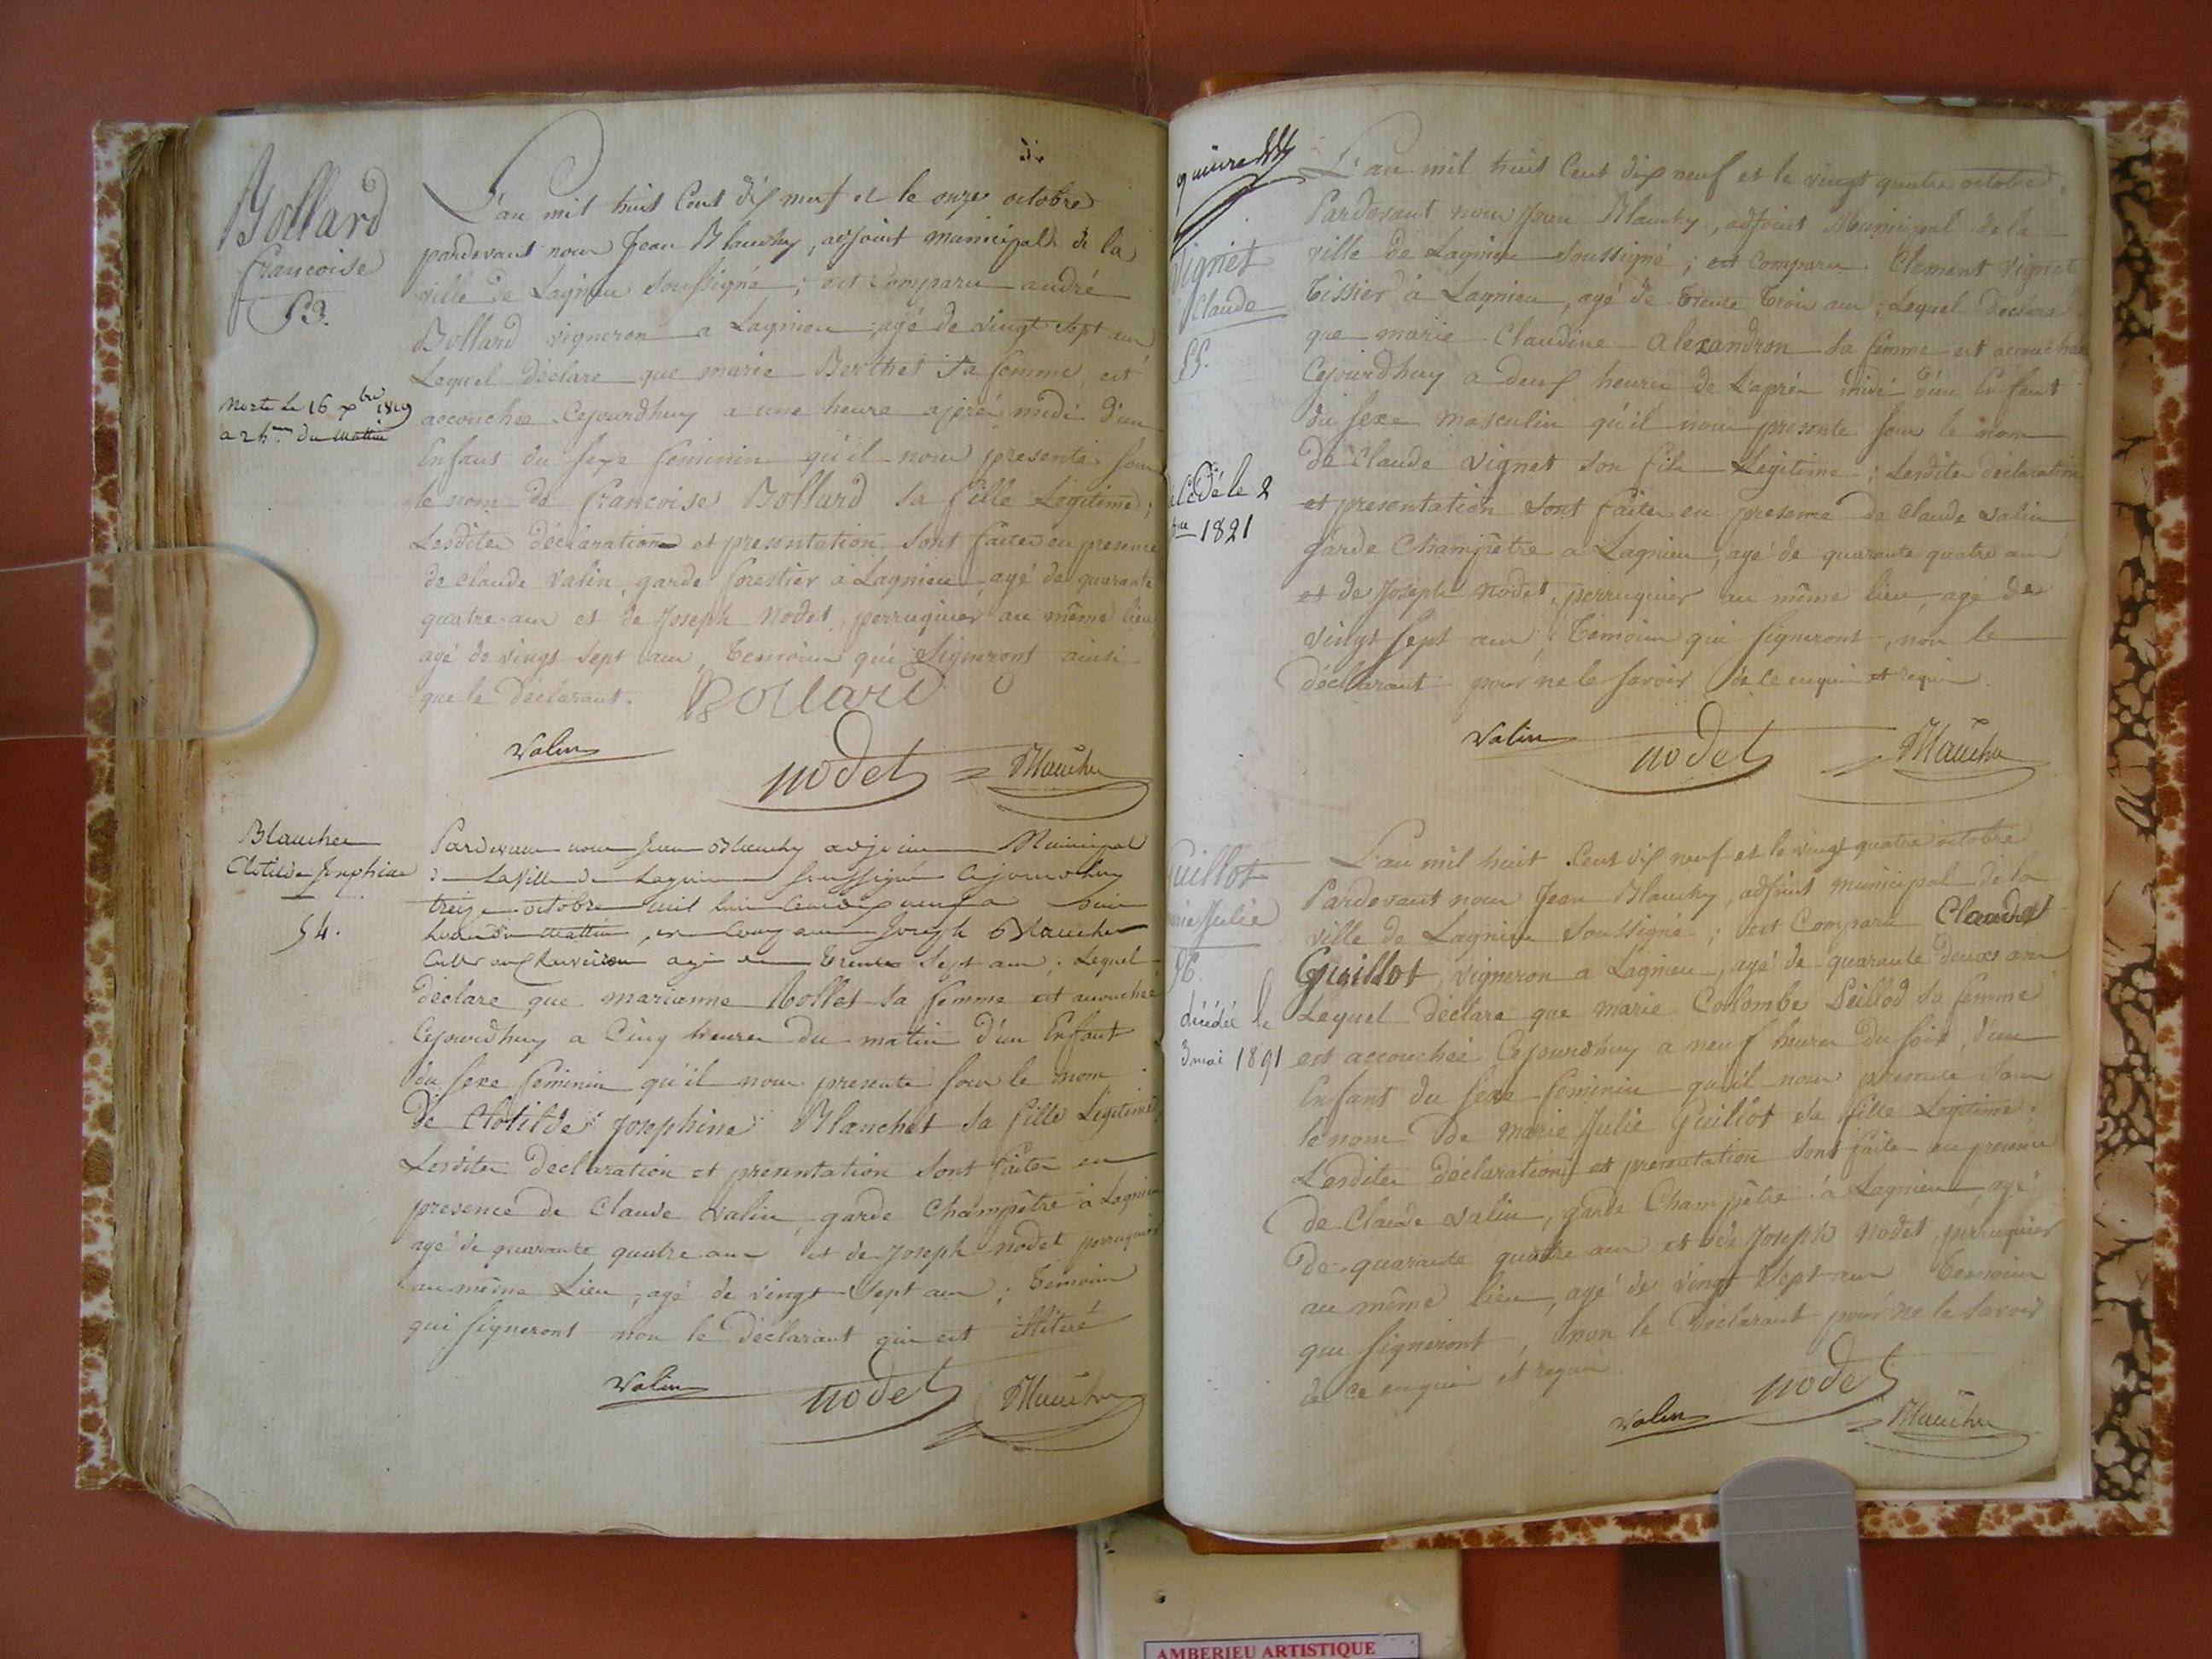 Bollard
francoise
53.
L'an mil huit Cent dix neuf et le onze octobre
pardevant nous Jean Blanchy, adjoint municipal de la
ville de Lagnieu soussigné ; est comparu andré
Bollard vigneron a Lagnieu, agé de vingt sept ans
Lequel déclare que marie Berthet sa femme, est
Morte le 16 xbre 1819
a 2 h. du Mattin
accouchée Cejourdhuy a une heure après midi d'un
Enfant du sexe feminin qu'il nous presente sous
le nom de francoise Bollard sa fille Légitime ;
Lesdites déclaration et presentation sont faites en presence
de claude valin, garde forestier à Lagnieu, agé de quarante
quatre ans et de Joseph nodet, perruquier au même lieu
agé de vingt sept ans, temoins qui signeront ainsi
que le déclarant. Bollard
valin nodet Blanchy
Blanchet
Clotilde Josephine
54.
Pardevant nous Jean Blanchy adjoint Municipal
de la ville de Lagnieu soussigné Cejourdhuy
treize octobre mil huit cent dix neuf a
du Mattin, est Comparu Joseph Blanchet
agé de trente sept ans ; Lequel
déclare que marianne Rollet sa femme est accouchée
Cejourdhuy a Cinq heures du matin d'un Enfant
du sexe feminin qu'il nous presente sous le nom
de Clotilde Josephine Blanchet sa fille Légitime
Lesdites declaration et presentation sont faites en
presence de Claude valin, garde Champêtre à Lagnieu
agé de quarante quatre ans et de Joseph nodet perruquier
au même Lieu, agé de vingt sept ans ; temoins
qui signeront non le déclarant qui est illiteré
valin nodet Blanchy
Vignet
Claude
55.
L'an mil huit Cent dix neuf et le vingt quatre octobre,
Pardevant nous Jean Blanchy, adjoint Municipal de la
ville de Lagnieu soussigné ; est Comparu Clement vignet
tissier à Lagnieu, agé de trente trois ans ; Lequel déclare
que marie Claudine alexandron sa femme est accouchée
Cejourdhuy a deux heures de L'après midi d'un Enfant
du sexe masculin qu'il nous presente sous le nom
de Claude vignet son fils Légitime ; Lesdites déclaration
décédé le 2
1821
et presentation sont faites en presence de claude valin
garde Champêtre a Lagnieu, agé de quarante quatre ans
et de Joseph nodet, perruquier au même lieu, agé de
vingt sept ans ; temoins qui signeront, non le
déclarant pour ne le savoir de ce enquis et requis.
valin nodet Blanchy
Guillot
Marie Julie
56.
L'an mil huit Cent dix neuf et le vingt quatre octobre
Pardevant nous Jean Blanchy, adjoint municipal de la
ville de Lagnieu soussigné ; est Comparu Claude
Guillot, vigneron a Lagnieu, agé de quarante deux ans
décédée le
3 mai 1891
Lequel déclare que marie Colombe Peillod sa femme
est accouchée Cejourdhuy a neuf heures du soir, d'un
Enfant du sexe feminin qu'il nous presente sous
le nom de marie Julie Guillot sa fille Légitime.
Lesdites déclaration et presentation sont faite en presence
de Claude valin, garde Champêtre à Lagnieu, agé
de quarante quatre ans et de Joseph nodet, perruquier
au même lieu, agé de vingt sept ans temoins
qui signeront, non le déclarant pour ne le savoir
de ce enquis et requis
valin nodet Blanchy
AMBERIEU ARTISTIQUE